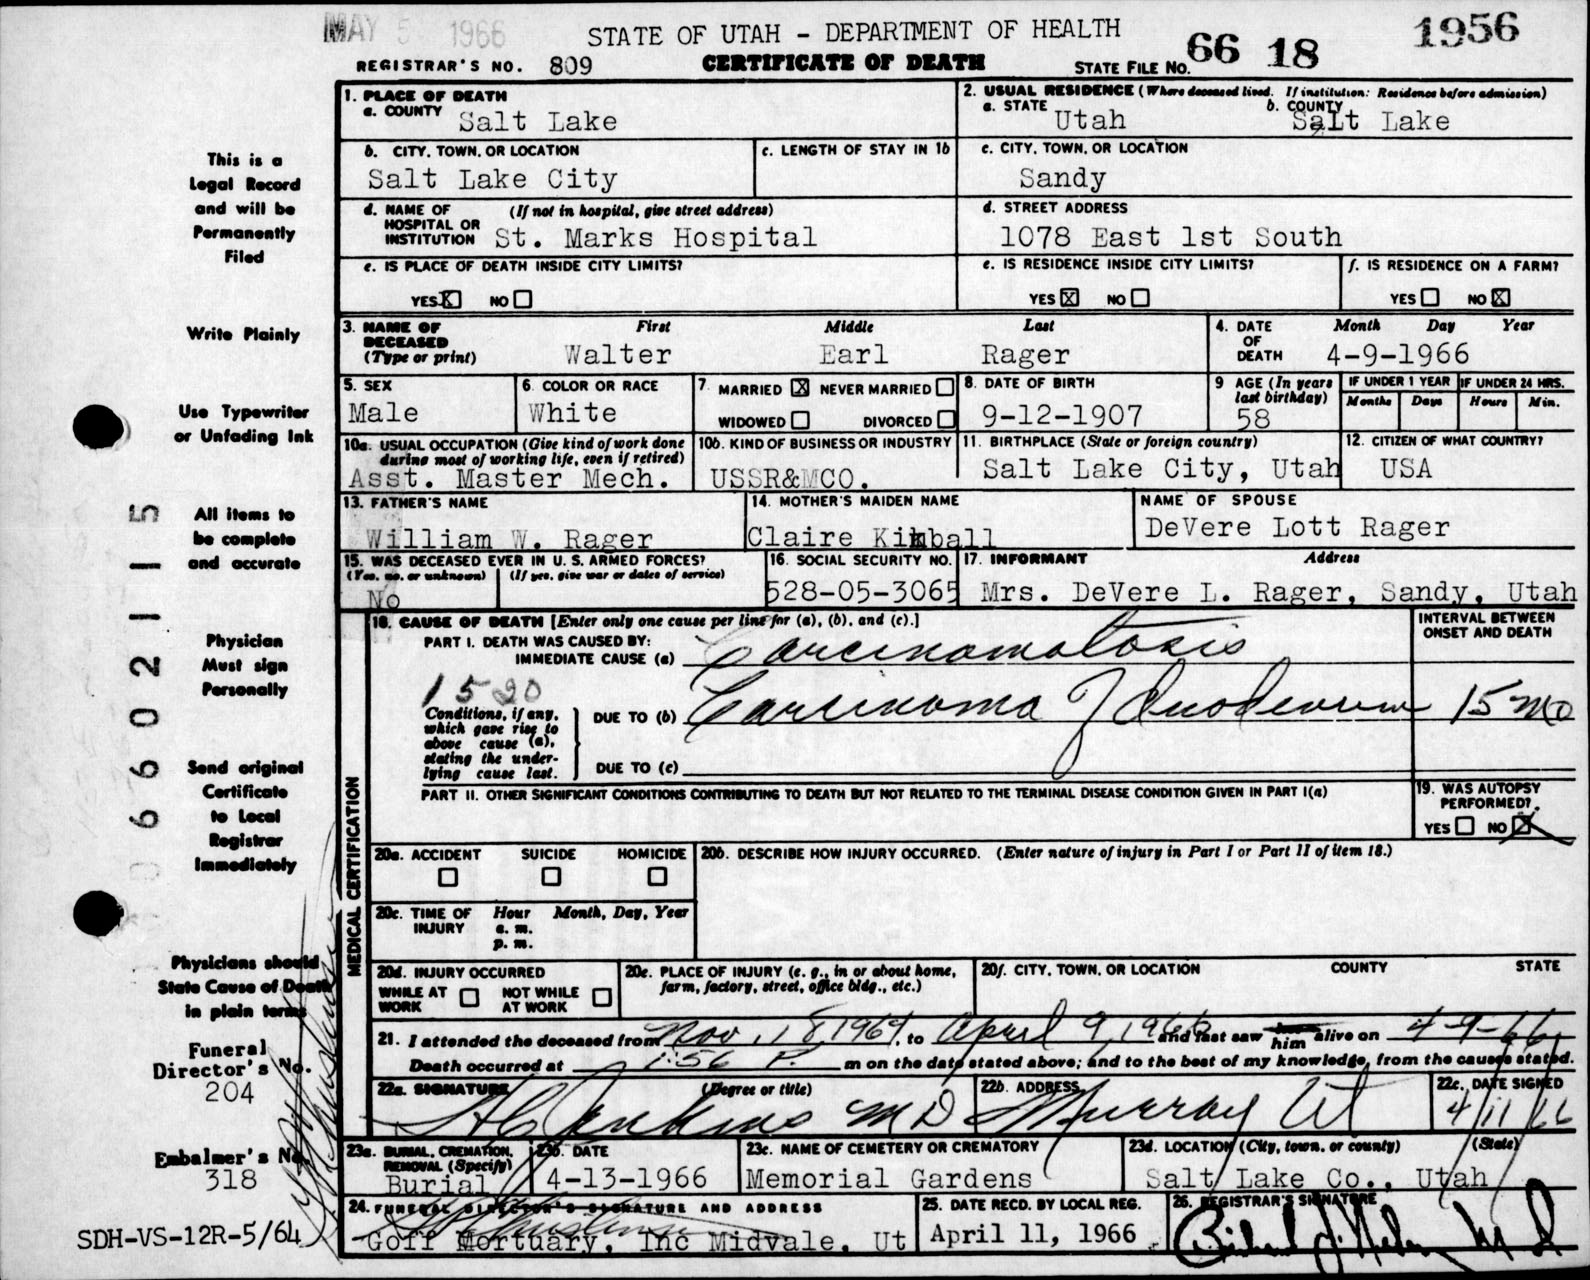 MAY 5 1966
STATE OF UTAH - DEPARTMENT OF HEALTH
1956
REGISTRAR'S NO. 809
CERTIFICATE OF DEATH
STATE FILE NO. 66 18
1. PLACE OF DEATH
a. COUNTY Salt Lake
2. USUAL RESIDENCE (Where deceased lived. If institution: Residence before admission)
a. STATE Utah b. COUNTY Salt Lake
b. CITY, TOWN, OR LOCATION
Salt Lake City
c. LENGTH OF STAY IN 1b
c. CITY, TOWN, OR LOCATION
Sandy
d. NAME OF HOSPITAL OR INSTITUTION (If not in hospital, give street address)
St. Marks Hospital
d. STREET ADDRESS
1078 East 1st South
e. IS PLACE OF DEATH INSIDE CITY LIMITS?
YES X NO
e. IS RESIDENCE INSIDE CITY LIMITS?
YES X NO
f. IS RESIDENCE ON A FARM?
YES NO X
3. NAME OF DECEASED (Type or print)
First Middle Last
Walter Earl Rager
4. DATE OF DEATH
Month Day Year
4-9-1966
5. SEX
Male
6. COLOR OR RACE
White
7. MARRIED X NEVER MARRIED
WIDOWED DIVORCED
8. DATE OF BIRTH
9-12-1907
9 AGE (In years last birthday)
58
IF UNDER 1 YEAR
Months Days
IF UNDER 24 HRS.
Hours Min.
10a. USUAL OCCUPATION (Give kind of work done during most of working life, even if retired)
Asst. Master Mech.
10b. KIND OF BUSINESS OR INDUSTRY
USSR&MCO.
11. BIRTHPLACE (State or foreign country)
Salt Lake City, Utah
12. CITIZEN OF WHAT COUNTRY?
USA
13. FATHER'S NAME
William W. Rager
14. MOTHER'S MAIDEN NAME
Claire Kimball
NAME OF SPOUSE
DeVere Lott Rager
15. WAS DECEASED EVER IN U. S. ARMED FORCES?
(Yes, no, or unknown) (If yes, give war or dates of service)
No
16. SOCIAL SECURITY NO.
528-05-3065
17. INFORMANT Address
Mrs. DeVere L. Rager, Sandy, Utah
18. CAUSE OF DEATH [Enter only one cause per line for (a), (b), and (c).]
PART I. DEATH WAS CAUSED BY:
IMMEDIATE CAUSE (a) Carcinomatosis
INTERVAL BETWEEN ONSET AND DEATH
1520
Conditions, if any, which gave rise to above cause (a), stating the underlying cause last.
DUE TO (b) Carcinoma of duodenum 15 mo
DUE TO (c)
PART II. OTHER SIGNIFICANT CONDITIONS CONTRIBUTING TO DEATH BUT NOT RELATED TO THE TERMINAL DISEASE CONDITION GIVEN IN PART I(a)
19. WAS AUTOPSY PERFORMED?
YES NO X
MEDICAL CERTIFICATION
20a. ACCIDENT SUICIDE HOMICIDE
20b. DESCRIBE HOW INJURY OCCURRED. (Enter nature of injury in Part I or Part II of item 18.)
20c. TIME OF INJURY
Hour Month, Day, Year
a. m.
p. m.
20d. INJURY OCCURRED
WHILE AT WORK NOT WHILE AT WORK
20e. PLACE OF INJURY (e. g., in or about home, farm, factory, street, office bldg., etc.)
20f. CITY, TOWN, OR LOCATION COUNTY STATE
21. I attended the deceased from Nov, 18, 1964, to April 9, 1966 and last saw him alive on 4-9-66
Death occurred at 1:56 P. m on the date stated above; and to the best of my knowledge, from the causes stated.
22a. SIGNATURE (Degree or title)
Jenkins MD
22b. ADDRESS
Murray Ut
22c. DATE SIGNED
4/11/66
23a. BURIAL, CREMATION, REMOVAL (Specify)
Burial
23b. DATE
4-13-1966
23c. NAME OF CEMETERY OR CREMATORY
Memorial Gardens
23d. LOCATION (City, town, or county) (State)
Salt Lake Co., Utah
24. FUNERAL DIRECTOR'S SIGNATURE AND ADDRESS
Goff Mortuary, Inc Midvale, Ut
25. DATE RECD. BY LOCAL REG.
April 11, 1966
26. REGISTRAR'S SIGNATURE
This is a
Legal Record
and will be
Permanently
Filed
Write Plainly
Use Typewriter
or Unfading Ink
All items to
be complete
and accurate
Physician
Must sign
Personally
Send original
Certificate
to Local
Registrar
Immediately
Physicians should
State Cause of Death
in plain terms
Funeral
Director's No.
204
Embalmer's No.
318
SDH-VS-12R-5/64
066021-15